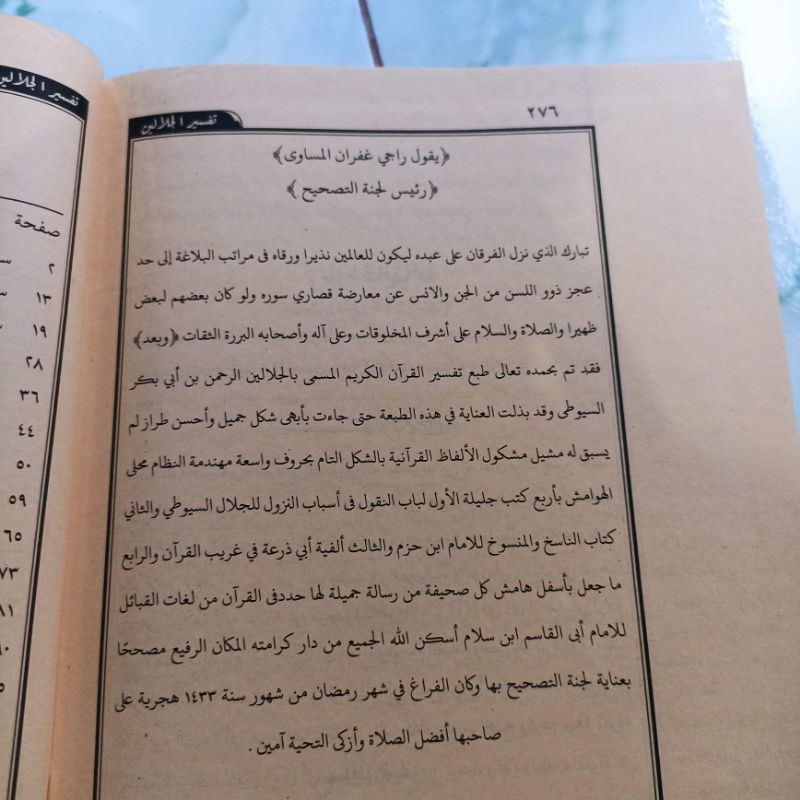 ٢٧٦
تفسير الجلالين
﴿يقول راجي غفران المساوى﴾
﴿رئيس لجنة التصحيح﴾
تبارك الذي نزل الفرقان على عبده ليكون للعالمين نذيرا ورقاه فى مراتب البلاغة إلى حد
عجز ذوو اللسن من الجن والانس عن معارضة قصاري سوره ولو كان بعضهم لبعض
ظهيرا والصلاة والسلام على أشرف المخلوقات وعلى آله وأصحابه البررة الثقات ﴿وبعد﴾
فقد تم بحمده تعالى طبع تفسير القرآن الكريم المسمى بالجلالين الرحمن بن أبي بكر
السيوطى وقد بذلت العناية في هذه الطبعة حتى جاءت بأبهى شكل جميل وأحسن طراز لم
يسبق له مشيل مشكول الألفاظ القرآنية بالشكل التام بحروف واسعة مهندمة النظام محلى
الهوامش بأربع كتب جليلة الأول لباب النقول فى أسباب النزول للجلال السيوطي والثاني
كتاب الناسخ والمنسوخ للامام ابن حزم والثالث ألفية أبي ذرعة في غريب القرآن والرابع
ما جعل بأسفل هامش كل صحيفة من رسالة جميلة لها حددفى القرآن من لغات القبائل
للامام أبى القاسم ابن سلام أسكن الله الجميع من دار كرامته المكان الرفيع مصححًا
بعناية لجنة التصحيح بها وكان الفراغ في شهر رمضان من شهور سنة ١٤٣٣ هجرية على
صاحبها أفضل الصلاة وأزكى التحية آمين .
تفسير الجلالين
صفحة
٢
١٣
١٩
٢٨
٣٦
٤٤
٥٠
٥٩
٦٥
٧٣